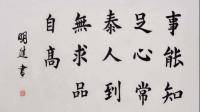 事能知
足心常
泰人到
無求品
自髙
明道書